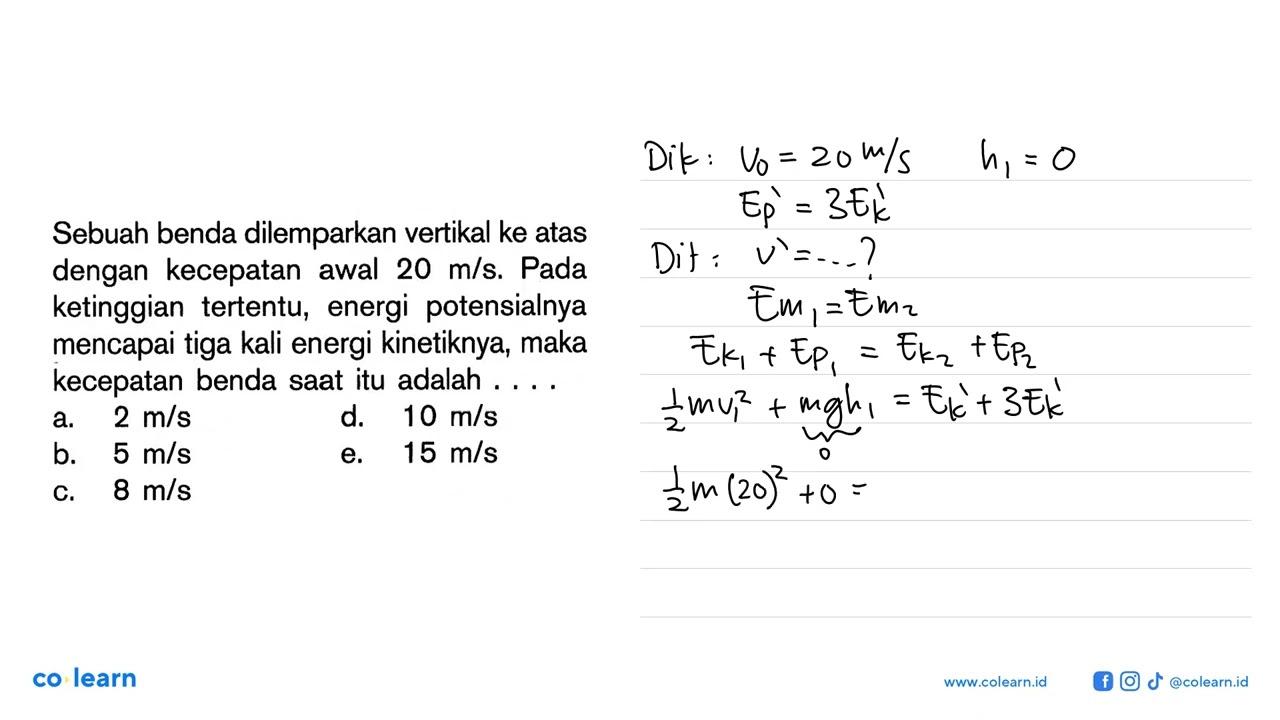 Sebuah benda dilemparkan vertikal ke atas
dengan kecepatan awal 20 m/s. Pada
ketinggian tertentu, energi potensialnya
mencapai tiga kali energi kinetiknya, maka
kecepatan benda saat itu adalah . . . .
a. 2 m/s d. 10 m/s
b. 5 m/s e. 15 m/s
c. 8 m/s
Dik: V₀ = 20 m/s h₁ = 0
Ep` = 3Ek`
Dit: v` = ...?
Em₁ = Em₂
Ek₁ + Ep₁ = Ek₂ + Ep₂
1/2 mv₁² + mgh₁ = Ek` + 3Ek`
0
1/2 m (20)² + 0 =
co learn
www.colearn.id @colearn.id